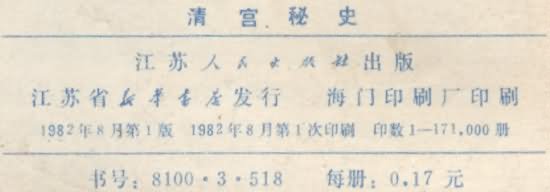 清宫秘史
江苏人民出版社出版
江苏省新华书店发行 海门印刷厂印刷
1982年8月第1版 1982年8月第1次印刷 印数1—171,000册
书号:8100·3·518 每册:0.17元